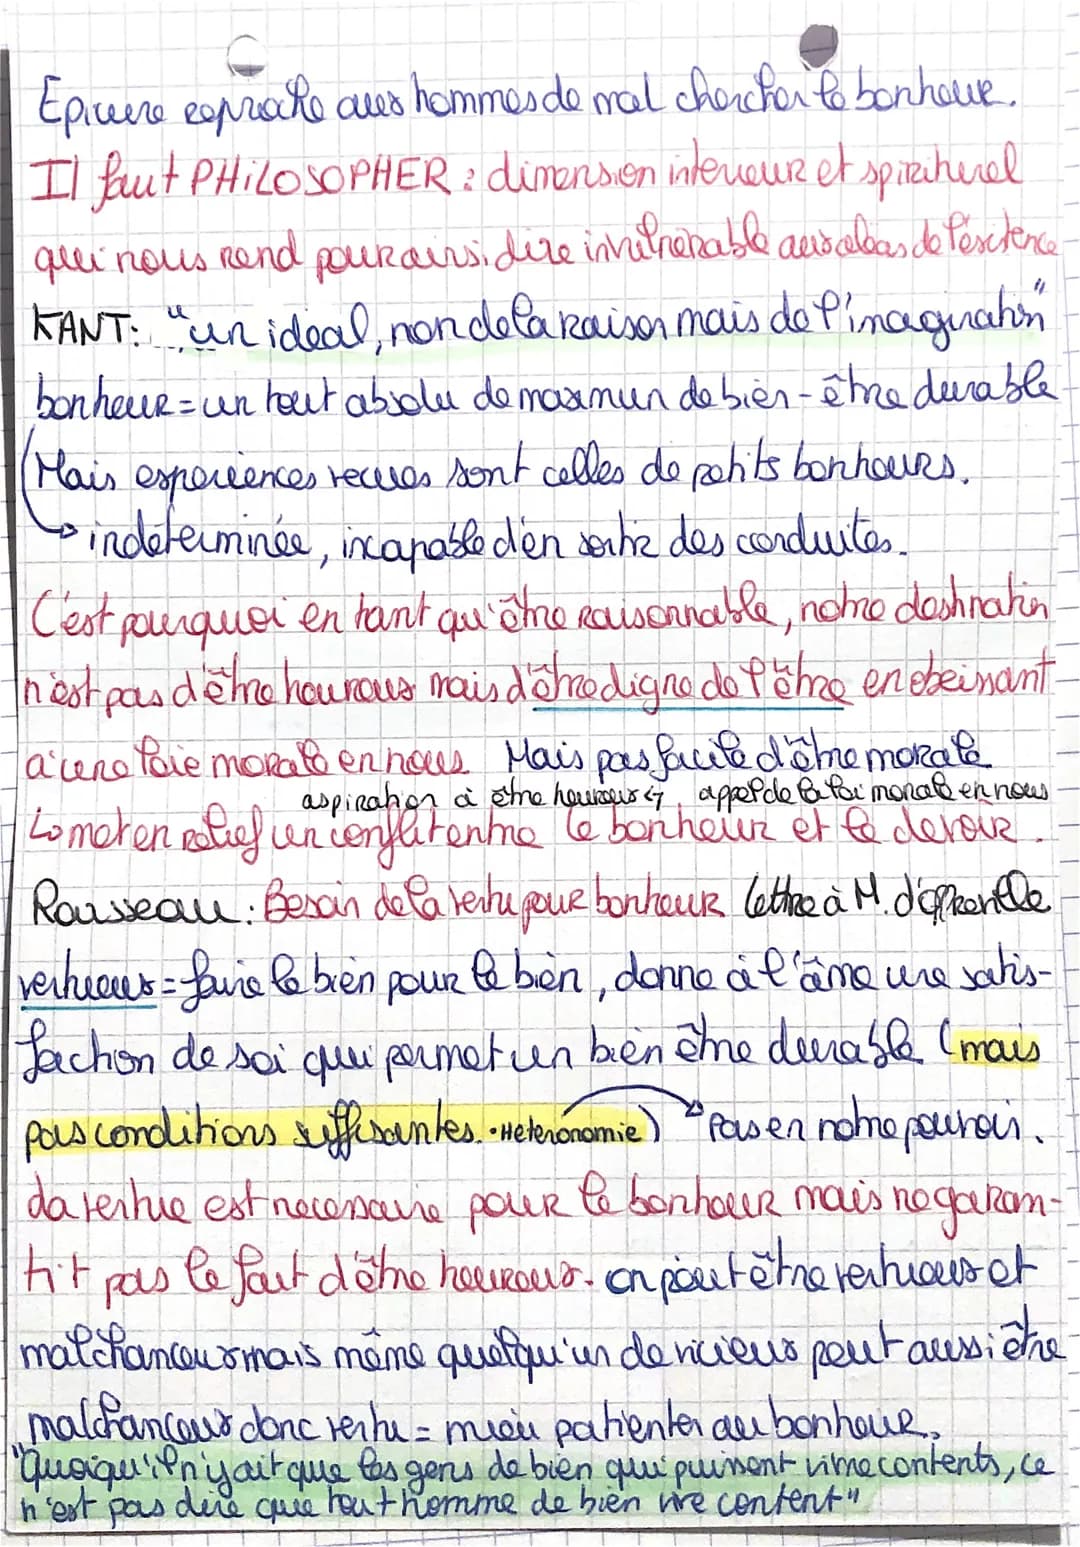 Epicure reproche aux hommes de mal chercher le bonheur.
Il faut PHILOSOPHER : dimension interieur et spirituel
qui nous rend pour ainsi dire invulnérable aux aléas de l'existence
KANT: "un idéal, non de la raison mais de l'imagination"
bonheur = un tout absolu de maximun de bien-être durable
Mais experiences recues sont celles de petits bonheurs.
→ indéterminée, incapable d'en sortir des conduites.
C'est pourquoi en tant qu'être raisonnable, notre destination
n'est pas d'être heureux mais d'être digne de l'être en obeissant
à une loie morale en nous. Mais pas facile d'être morale
aspiration à être heureux ↔ appel de la loi morale en nous
Lo met en relief un conflit entre le bonheur et le devoir.
Rousseau : Besoin de la vertu pour bonheur lettre à M. d'offreville
vertueux = faire le bien pour le bien, donne à l'âme une satis-
faction de soi qui permet un bien être durable (mais
pas conditions suffisantes. • Heteronomie) → Pas en notre pouvoir.
La vertue est necessaire pour le bonheur mais ne garan-
tit pas le fait d'être heureux. on peut être vertueux et
malchanceux mais même quelqu'un de vicieux peut aussi être
malchanceux donc vertu = mieu patienter au bonheur.
"Quoiqu'il n'y ait que les gens de bien qui puissent vivre contents, ce
n'est pas dire que tout homme de bien vive content"